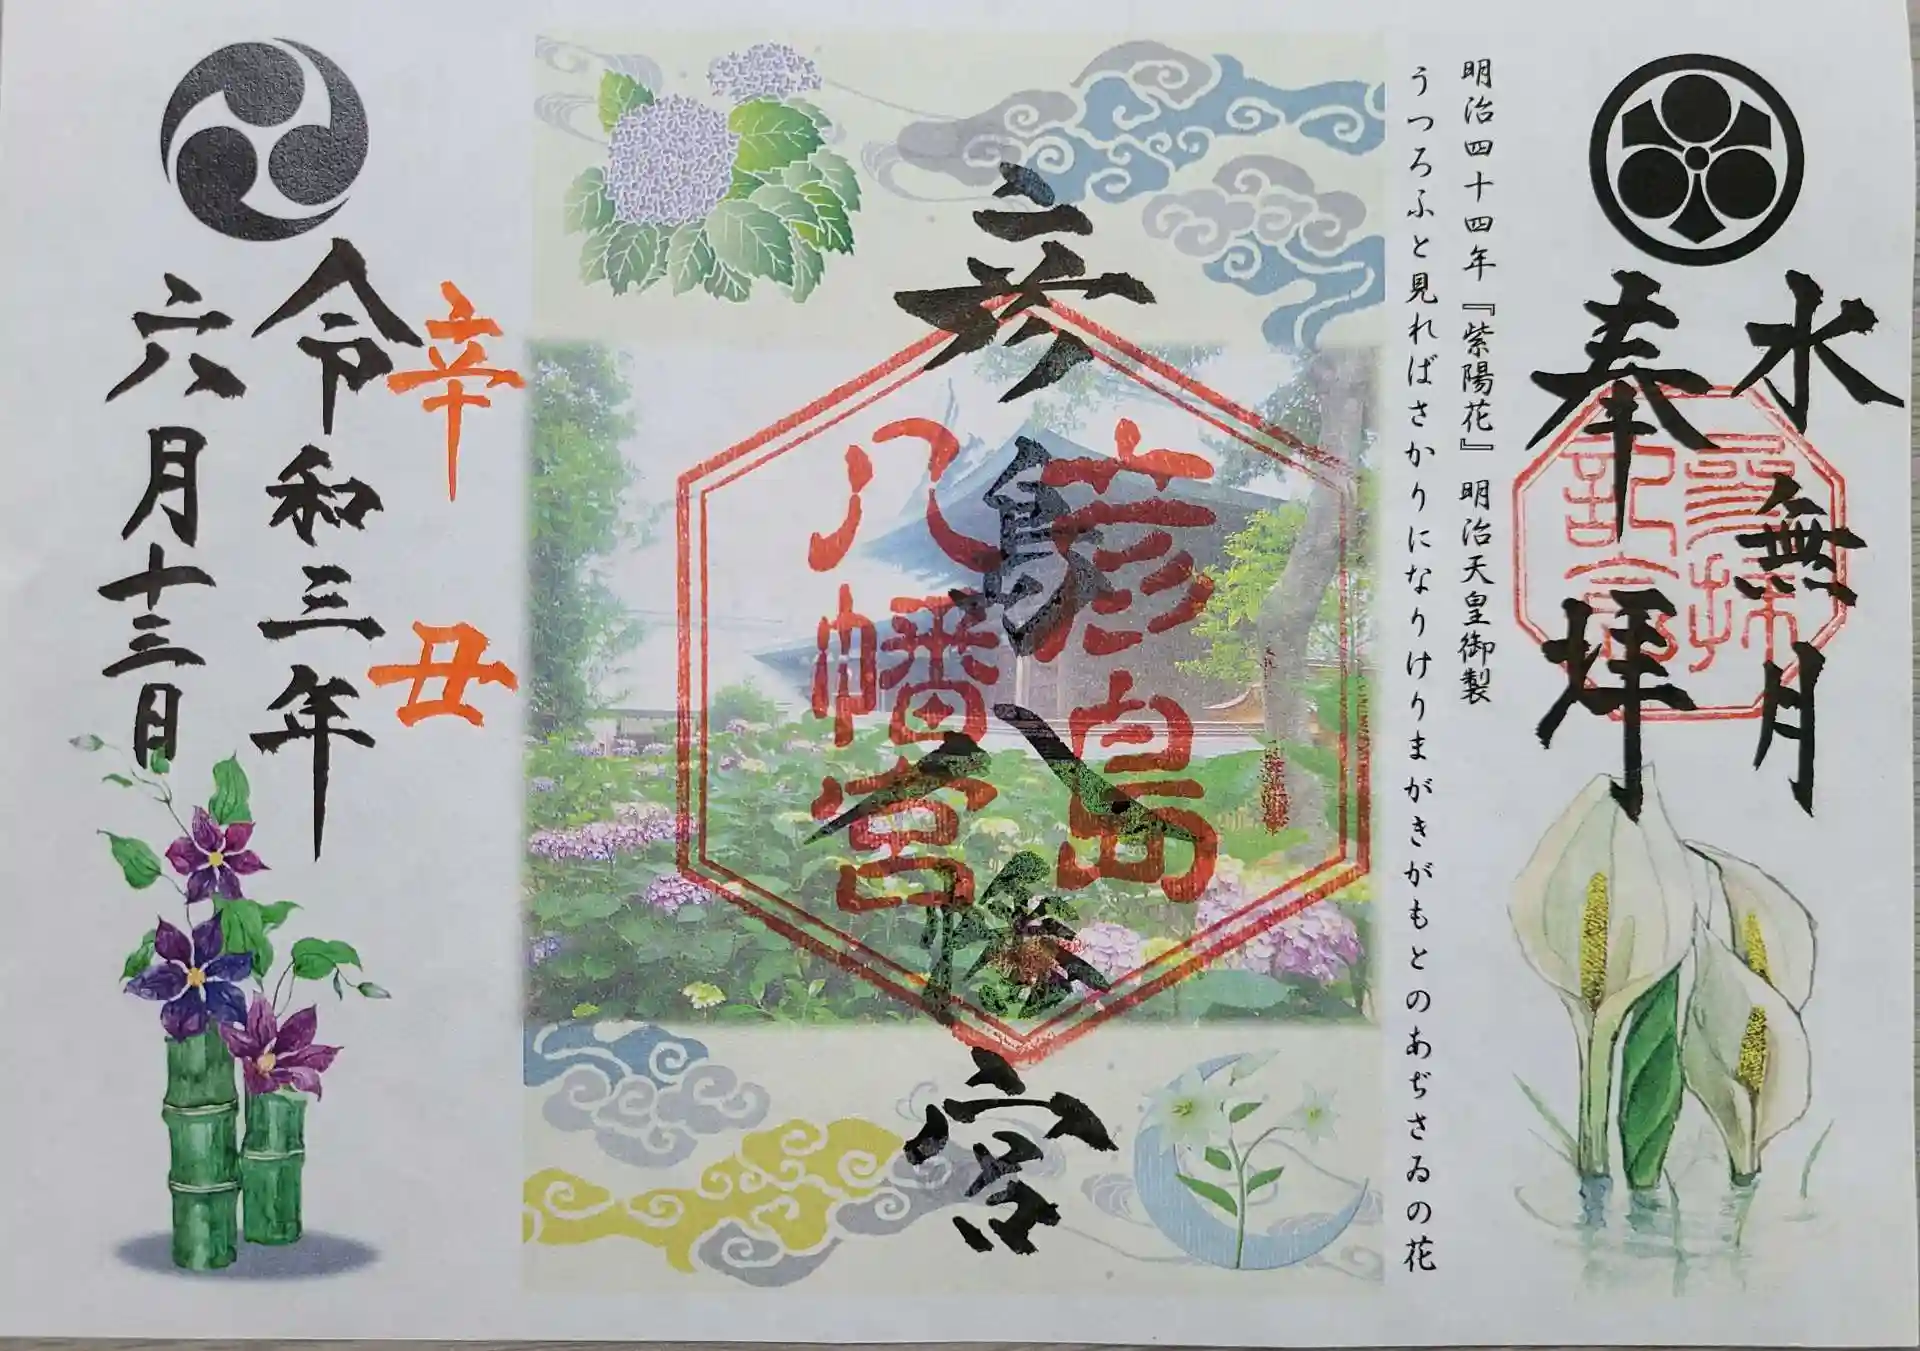 水無月
奉拝
参拝記念
明治四十四年『紫陽花』 明治天皇御製
うつろふと見ればさかりになりけりまがきがもとのあぢさゐの花
彦島八幡宮
彦島
八幡宮
辛丑
令和三年
六月十三日